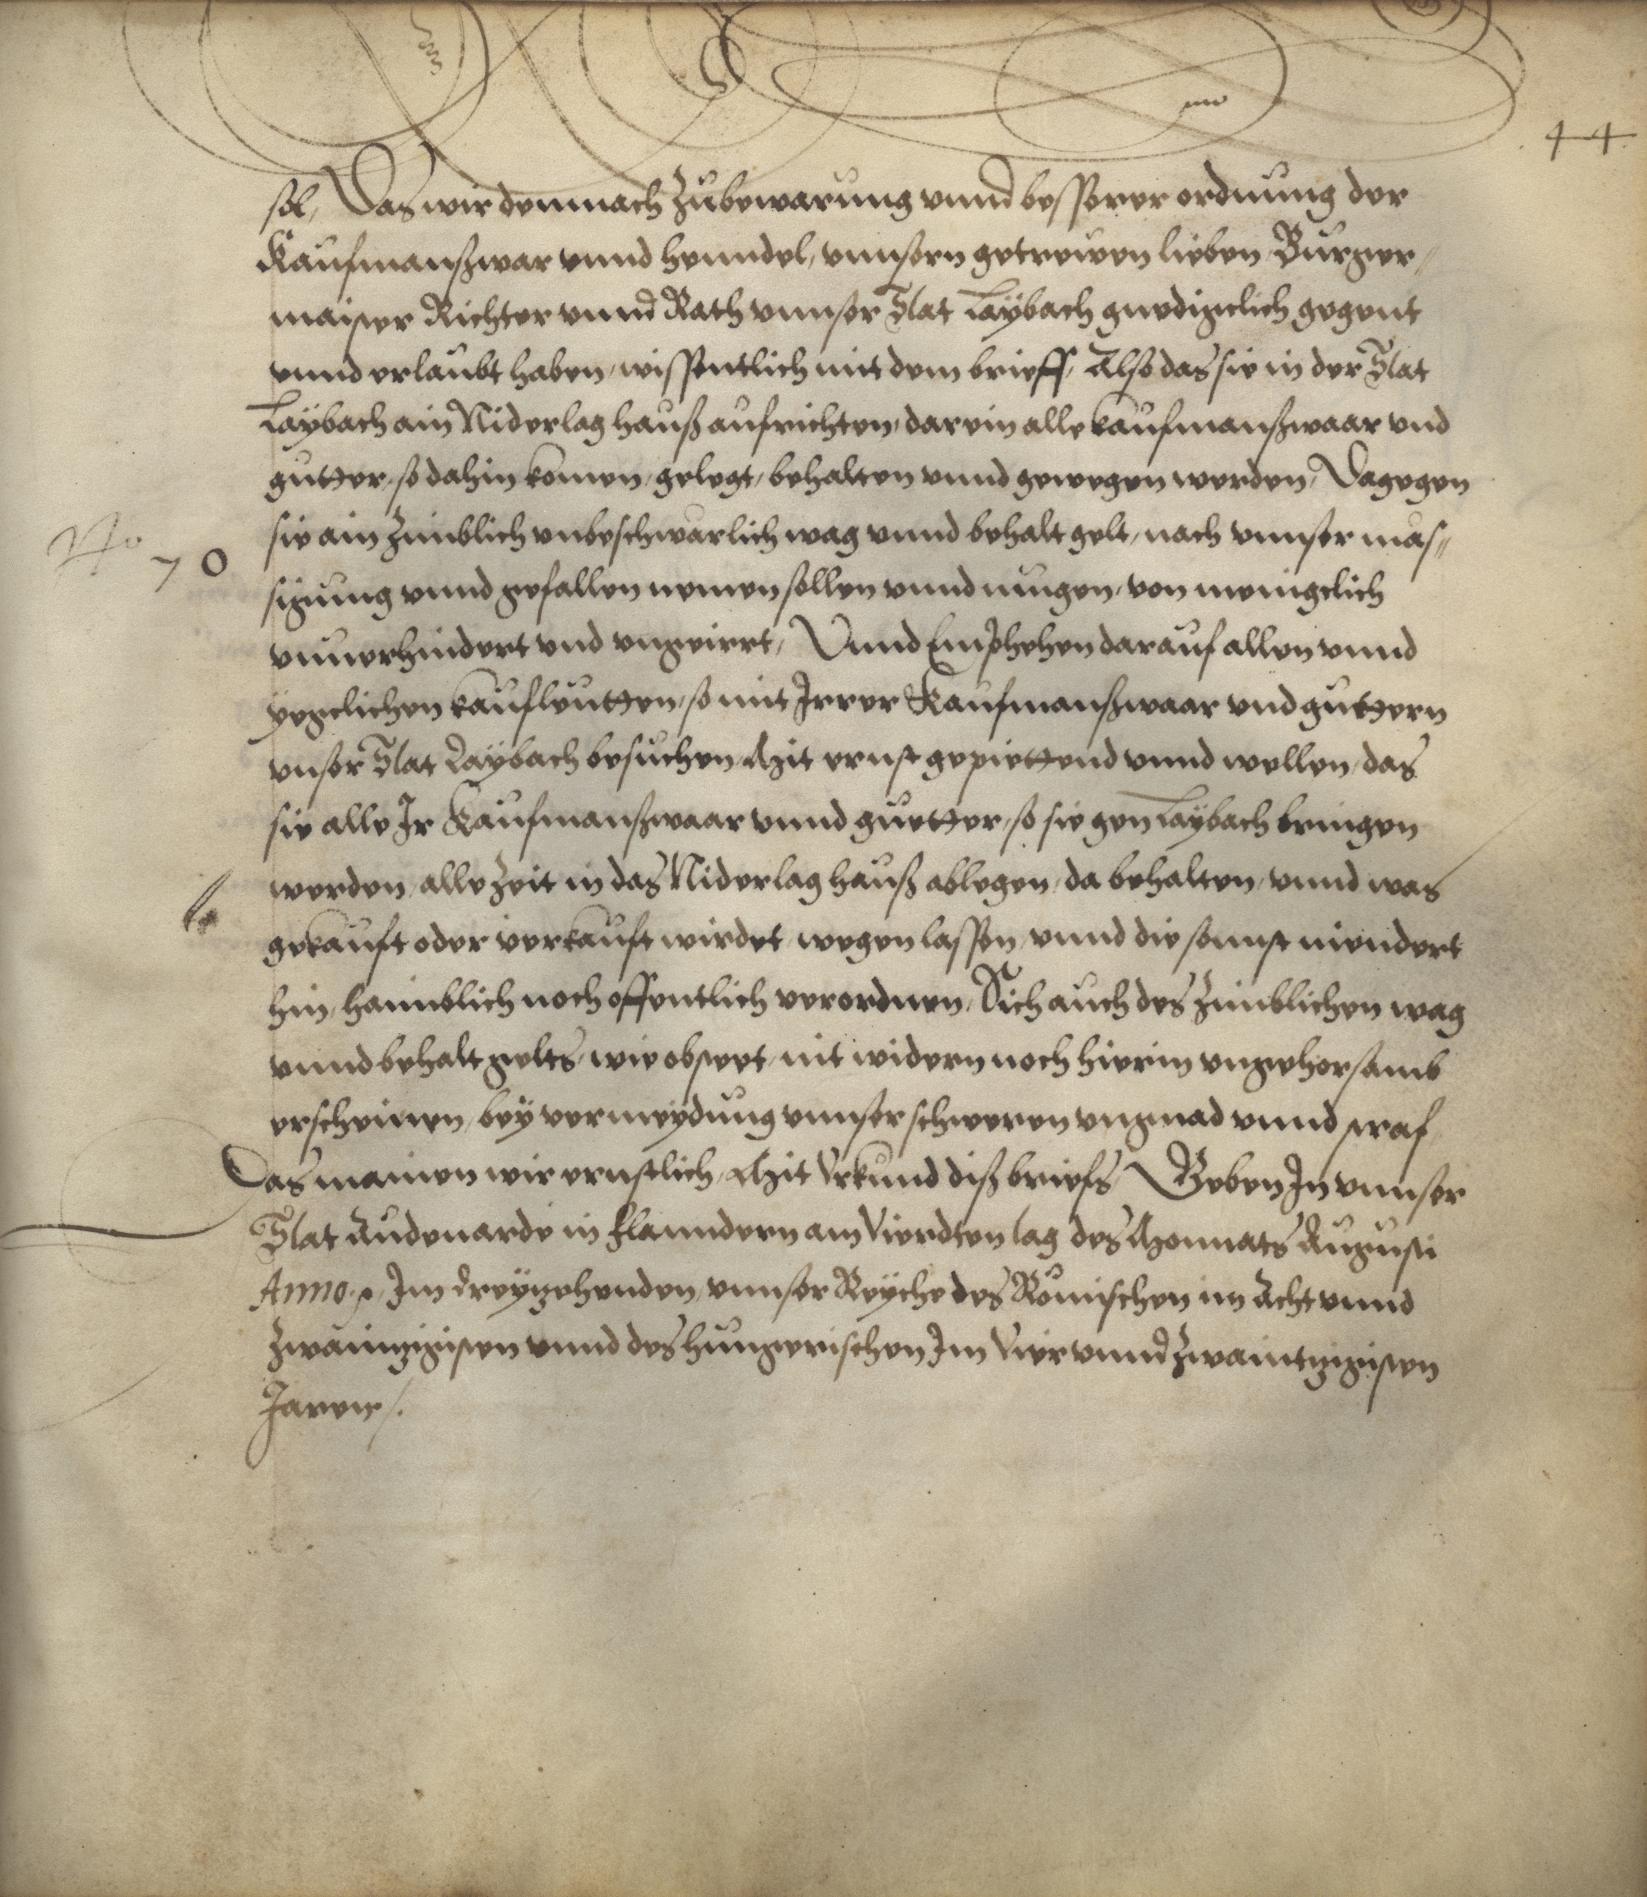 44
sol, Das wir demnach zubewarung vnnd besserer ordnung der
Kaufmanßwar vnnd henndel, vnnsern getrewen lieben Burger,
maister Richter vnnd Rath vnnser Stat Laybach gnedigclich gegent
vnnd erlaubt haben, wissentlich mit dem brieff, Also das sie in der Stat
Laybach ain Niderlag hauß aufrichten, darein alle kaufmanßwaar vnd
gutter, so dahin komen, gelegt, behalten vnnd gewegen werden, Dagegen
sie ain zimblich vnbeschwarlich wag vnnd behalt gelt, nach vnnser mas=
No 70
sigung vnnd gefallen nemen sollen vnnd mugen, von menigclich
vnuerhindert vnd vngeirrt, Vnnd Emphehen darauf allen vnnd
yegclichen kaufleutten, so mit Irrer Kaufmanßwaar vnd guttern
vnser Stat Laybach besuchen, Mit ernst gepiettend vnnd wellen, das
sie alle Ir Kaufmanßwaar vnnd guetter, so sie gen Laybach bringen
werden, alle Zeit in das Niderlag hauß ablegen, da behalten, vnnd was
gekauft oder verkauft wirdet, wegen lassen, vnnd die sonnst niendert
hin, haimblich noch offentlich verordnen, Sich auch des zimblichen wag
vnnd behalt gelts, wie obsteet, nit widern noch hierin vngehorsamb
erscheinen, bey vermeydung vnnser schweren vngnad vnnd straf
Das mainen wir ernstlich, Mit Vrkund diß briefs, Geben In vnnser
Stat Audenarde in Flanndern am Vierdten tag des Monnats Augusti
Anno, Im dreyzehenden, vnnser Reyche des Römischen im Acht vnnd
zwaintzigisten vnnd des hungerischen Im Vier vnnd zwaintzigisten
Jaren /.